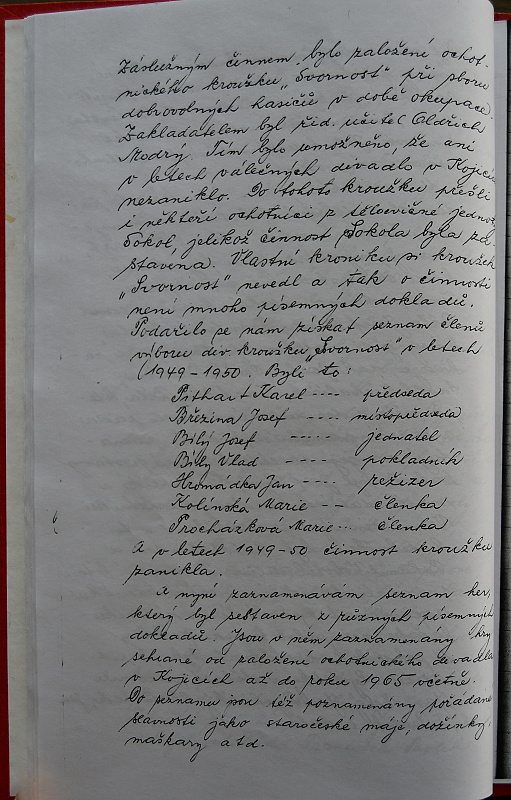 Záslužným činem bylo založení ochot-
nického kroužku „Svornost" při sboru
dobrovolných hasičů v době okupace.
Zakladatelem byl říd. učitel Oldřich
Modrý. Tím bylo umožněno, že ani
v letech válečných divadlo v Kojicích
nezaniklo. Do tohoto kroužku přešli
i někteří ochotníci z tělocvičné jednoty
Sokol, jelikož činnost Sokola byla za-
stavena. Vlastní kroniku si kroužek
„Svornost" nevedl a tak o činnosti
není mnoho písemných dokladů.
Podařilo se nám získat seznam členů
výboru div. kroužku „Svornost" v letech
(1949-1950. Byli to:
Pithart Karel ---- předseda
Březina Josef ---- místopředseda
Bílý Josef ----- jednatel
Bílý Vlad ---- pokladník
Hromádka Jan ---- režizer
Kolínská Marie -- členka
Procházková Marie -- členka
A v letech 1949-50 činnost kroužku
zanikla.
A nyní zaznamenávám seznam her,
který byl sestaven z různých písemných
dokladů. Jsou v něm zaznamenány hry
sehrané od založení ochotnického divadla
v Kojicích až do roku 1965 včetně.
Do seznamu jsou též poznamenány pořádané
slavnosti jako staročeské máje, dožínky,
maškary atd.